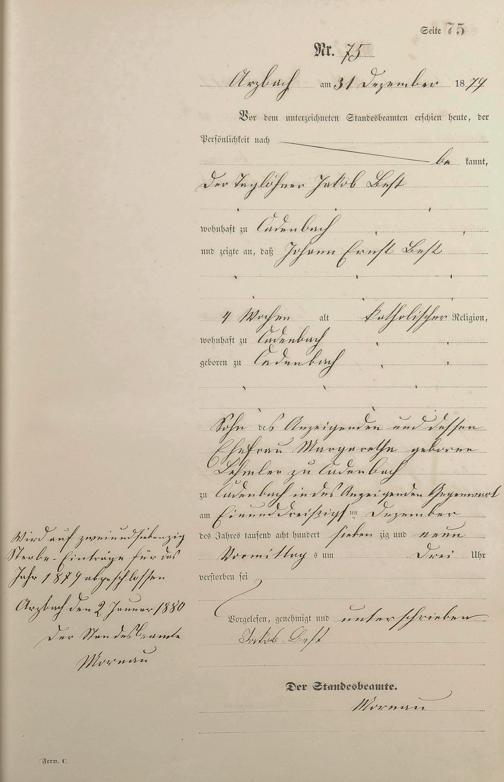 Seite 75
Nr. 75
Arzbach am 31 Dezember 1879
Vor dem unterzeichneten Standesbeamten erschien heute, der
Persönlichkeit nach
be kannt,
der Taglöhner Jakob Best
wohnhaft zu Cadenbach
und zeigte an, daß Johann Ernst Best
4 Wochen alt katholischer Religion,
wohnhaft zu Cadenbach
geboren zu Cadenbach
Sohn des Anzeigenden und dessen
Ehefrau Margaretha geborene
zu Cadenbach
zu Cadenbach in des Anzeigenden Gegenwart
am Einunddreißigsten Dezember
des Jahres tausend acht hundert sieben zig und neun
Vormittags um Drei Uhr
verstorben sei
Vorgelesen, genehmigt und unterschrieben
Jakob Best
Der Standesbeamte.
Mornau
Wird auf zweiundsiebenzig
Sterbe-Einträge für das
Jahr 1879 abgeschlossen
Arzbach den 2 Januar 1880
Der Standesbeamte
Mornau
Form. C.